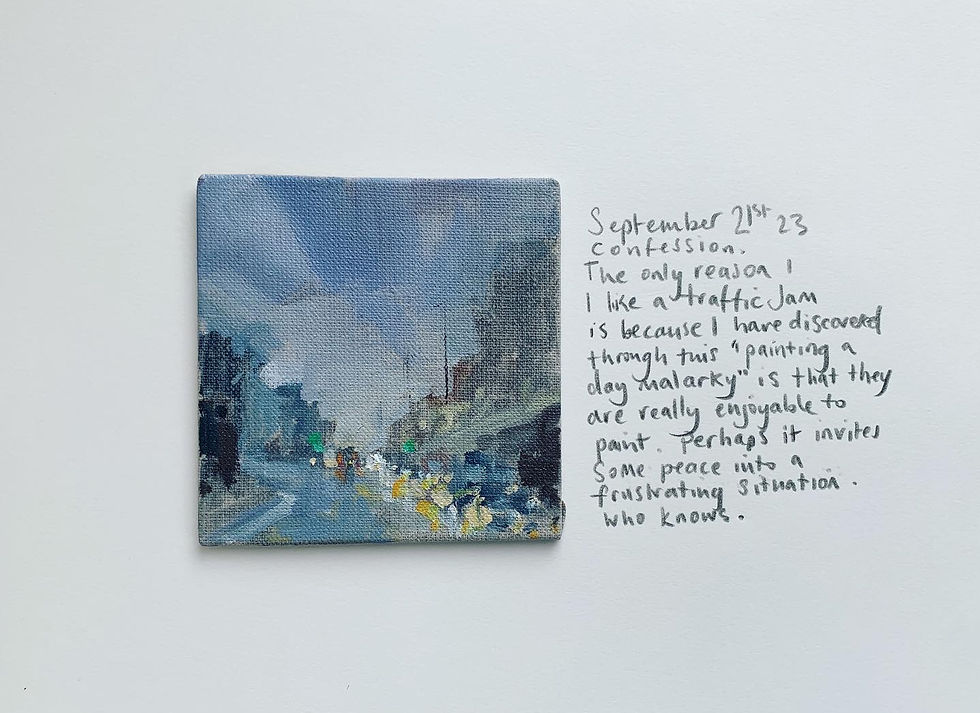 September 21st 23
confession.
The only reason I
I like a traffic Jam
is because I have discovered
through this "painting a
day malarky" is that they
are really enjoyable to
paint. Perhaps it invites
some peace into a
frustrating situation.
who knows.